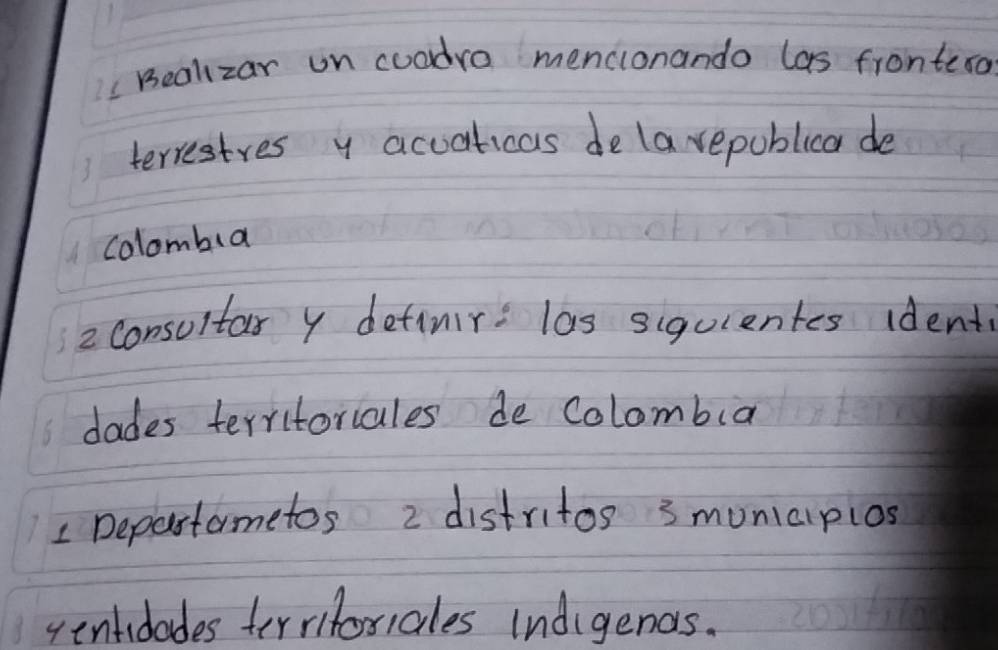 1 Realizar un cuadro mencionando las fronteras
terrestres y acuaticas de la republica de
colombia
2 consultar y definir: las siguientes identi
dades territoriales de Colombia
1 Depastametos 2 distritos 3 municipios
y entidades territoriales indigenas.